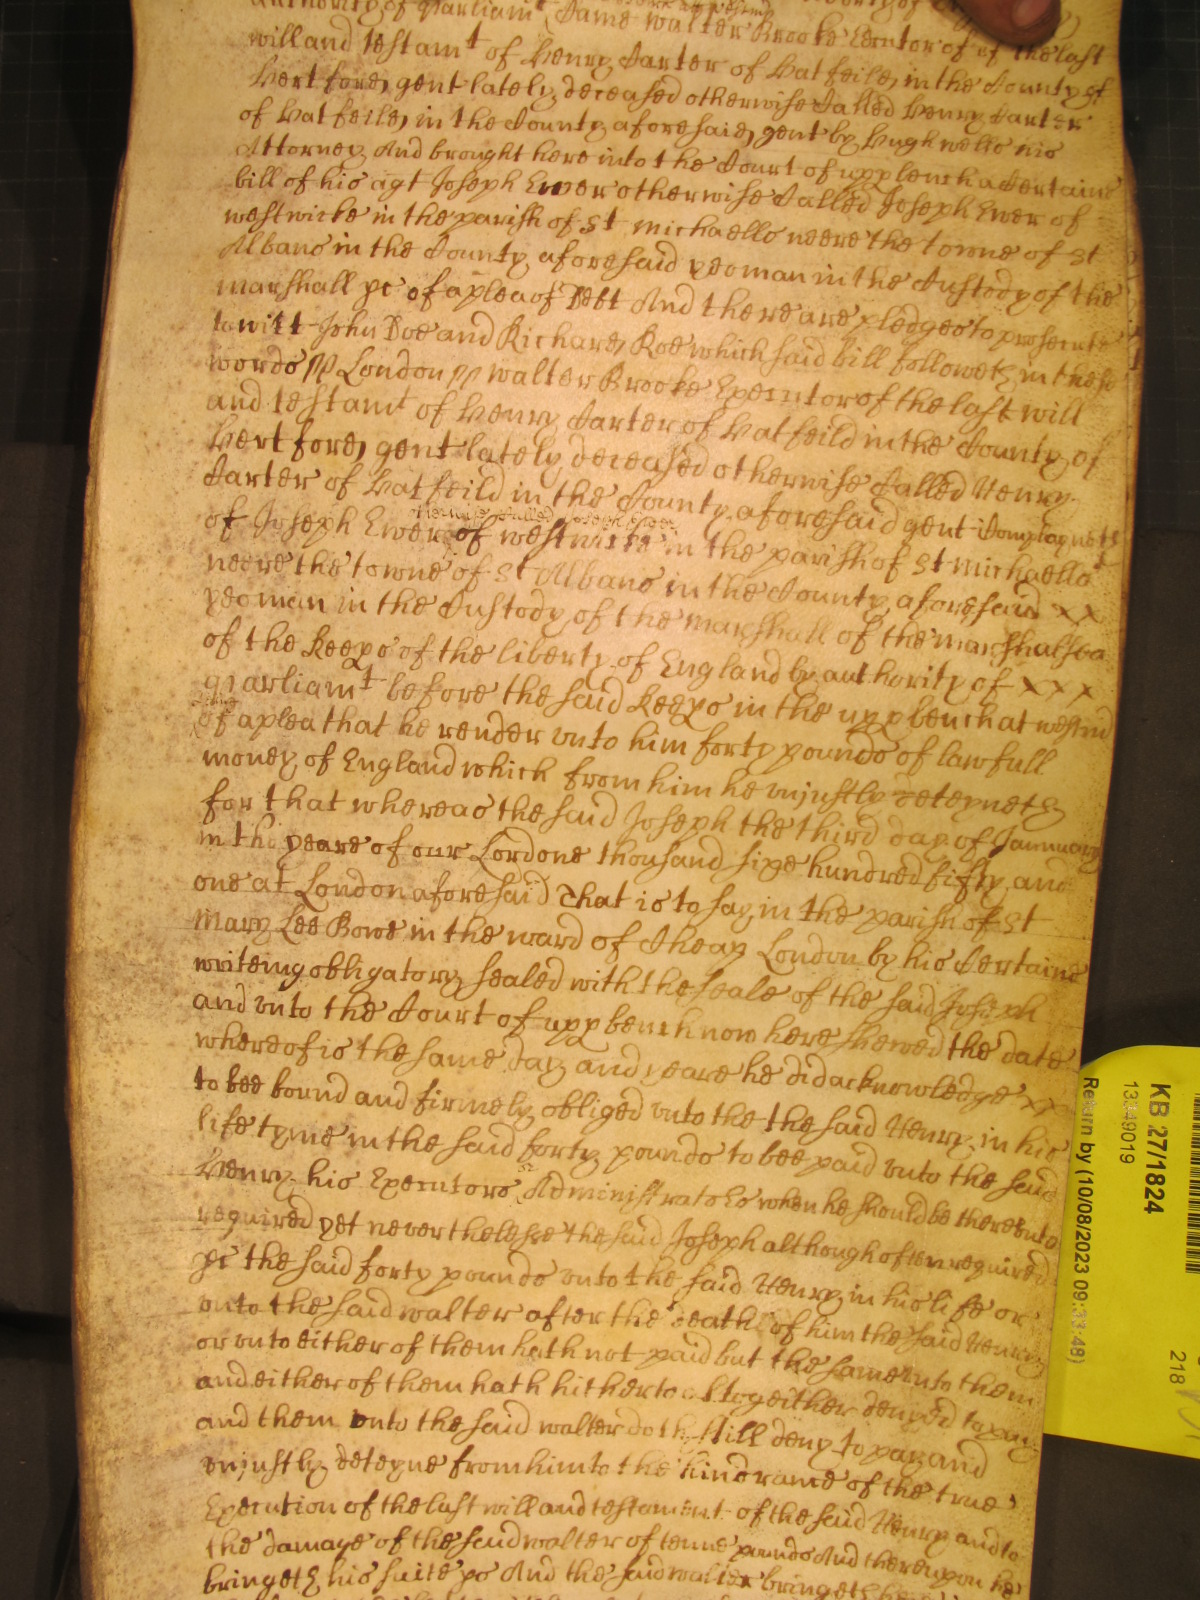 authority of Parliamt Came Walter Brooke Executor of of the last
will and testamt of Henry Carter of Hatfeild in the County of
Hertford gent lately deceased otherwise Called Henry Carter
of Hatfeild in the County aforesaid gent by Hugh Wells his
Attorney And brought here into the Court of upp bench a Certaine
bill of his agt Joseph Ewer otherwise Called Joseph Ewer of
westwicke in the parish of St Michaells neere the towne of St
Albans in the County aforesaid yeoman in the Custody of the
marshall &c of a plea of Debt And there are pledges to prosecute
to witt John Doe and Richard Roe which said bill followeth in these
words // London // Walter Brooke Executor of the last will
and testamt of Henry Carter of Hatfeild in the County of
Hertford gent lately deceased otherwise Called Henry
Carter of Hatfeild in the County aforesaid gent Complayneth
otherwise Called Joseph Ewer
of Joseph Ewer of westwicke in the parish of St Michaells
neere the towne of St Albans in the County aforesaid x x
yeoman in the Custody of the marshall of the marshalsea
of the Keeps of the liberty of England by authority of x x x
Parliamt before the said Keeps in the upp bench at westm
of a plea that he render unto him forty pounds of lawfull
money of England which from him he unjustly deteyneth
for that whereas the said Joseph the third day of January
in the yeare of our Lord one thousand sixe hundred fifty and
one at London aforesaid That is to say in the parish of St
Mary Lee Bowe in the ward of Cheap London by his Certaine
writeing obligatory sealed with the seale of the said Joseph
and unto the Court of upp bench now here shewed the date
whereof is the same day and yeare he did acknowledge x x
to bee bound and firmely obliged unto the the said Henry in his
life tyme in the said forty pounds to bee paid unto the said
Henry his Executors or Administrators when he should be thereunto
required yet neverthelesse the said Joseph although often required
&c the said forty pounds unto the said Henry in his life or
unto the said walter after the death of him the said Henry
or unto either of them hath not paid but the same unto them
and either of them hath hitherto altogeither denyed to pay
and them unto the said walter doth still deny to pay and
unjustly deteyne from him to the hindrance of the true
Execution of the last will and testament of the said Henry and to
the damage of the said walter of tenne pounds And thereupon he
bringeth his suite &c And the said walter bringeth here
KB 27/1824
13149019
Return by (10/08/2023 09:33:48)
218